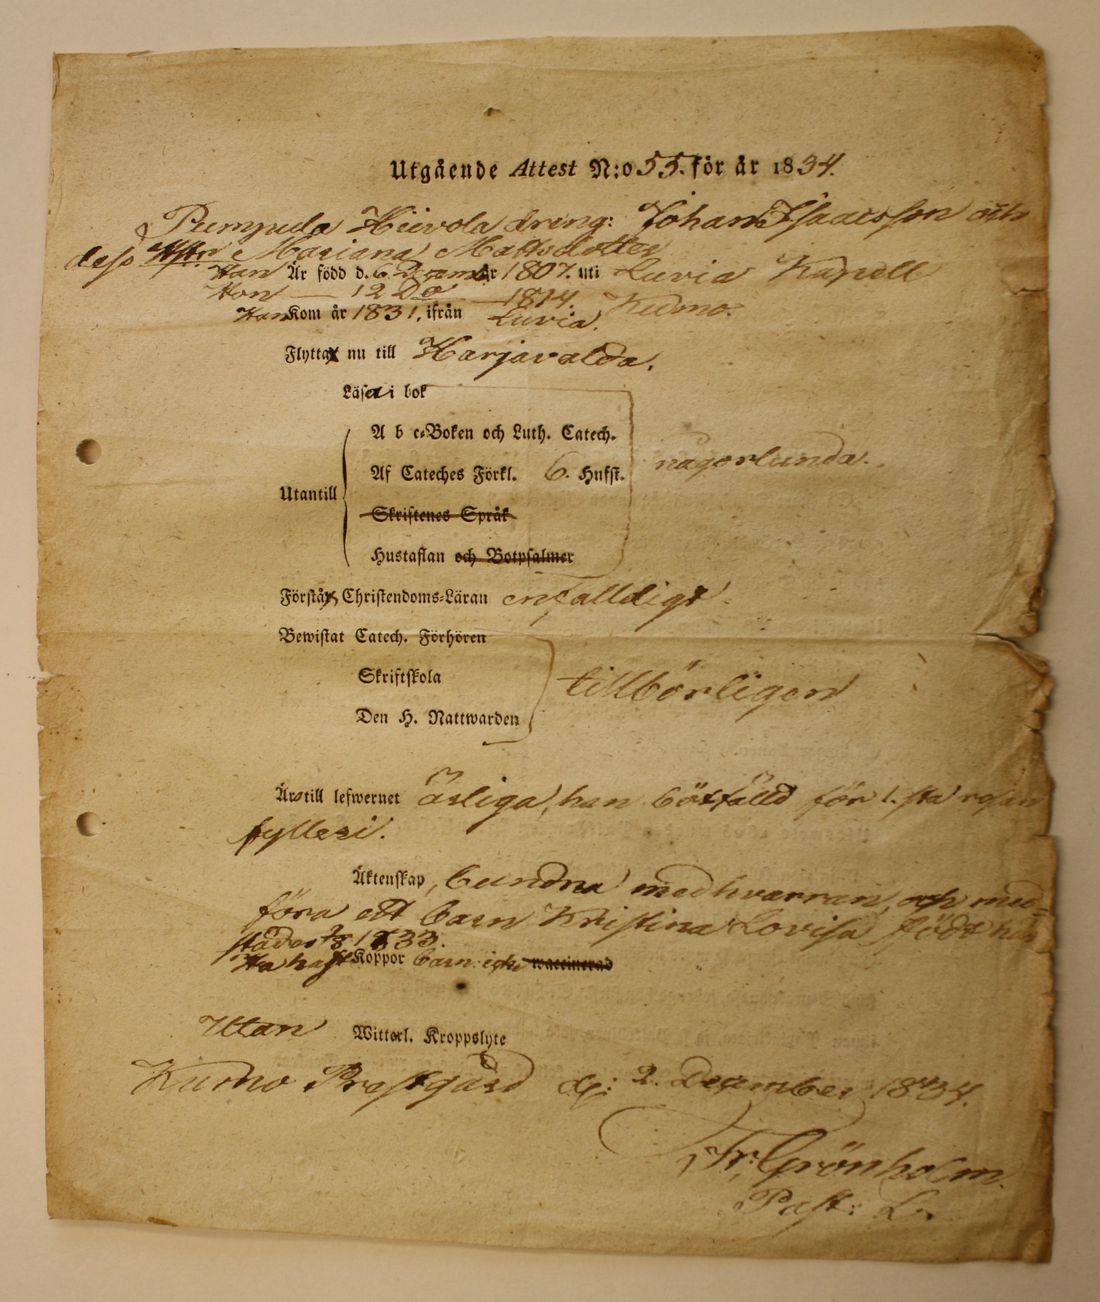 Utgående Attest N:o 55. för år 1834.
Pumpula Hiivola dreng: Johan Isaacsson och
dess Hstr Mariana Mattsdotter
Han Är född d. 6 Decemb 1807. uti Luvia Kapell
Hon — 12 Do — 1814. Kumo.
Han Kom år 1831, ifrån Luvia.
Flytta nu till Harjavalda.
Läsa i bok
A b c-Boken och Luth. Catech.
Af Cateches Förkl. 6. Hufst. någorlunda.
Utantill
Skriftenes Språk
Hustaflan och Botpsalmer
Förstå Christendoms-Läran enfalldigt.
Bewistat Catech. Förhören
Skriftskola tillbörligen
Den H. Nattwarden
Äro till lefwernet ärliga, han bötfälld för 1. sta resan
fylleri.
Äktenskap, bundna med hvarran, och med-
föra ett barn Kristina Lovisa född här
städes 1833.
Ha haft Koppor barn: icke waccinerad
Utan Witterl. Kroppslyte
Kumo Prestgård d: 2. December 1834.
Fr: Grönholm
Past: L.